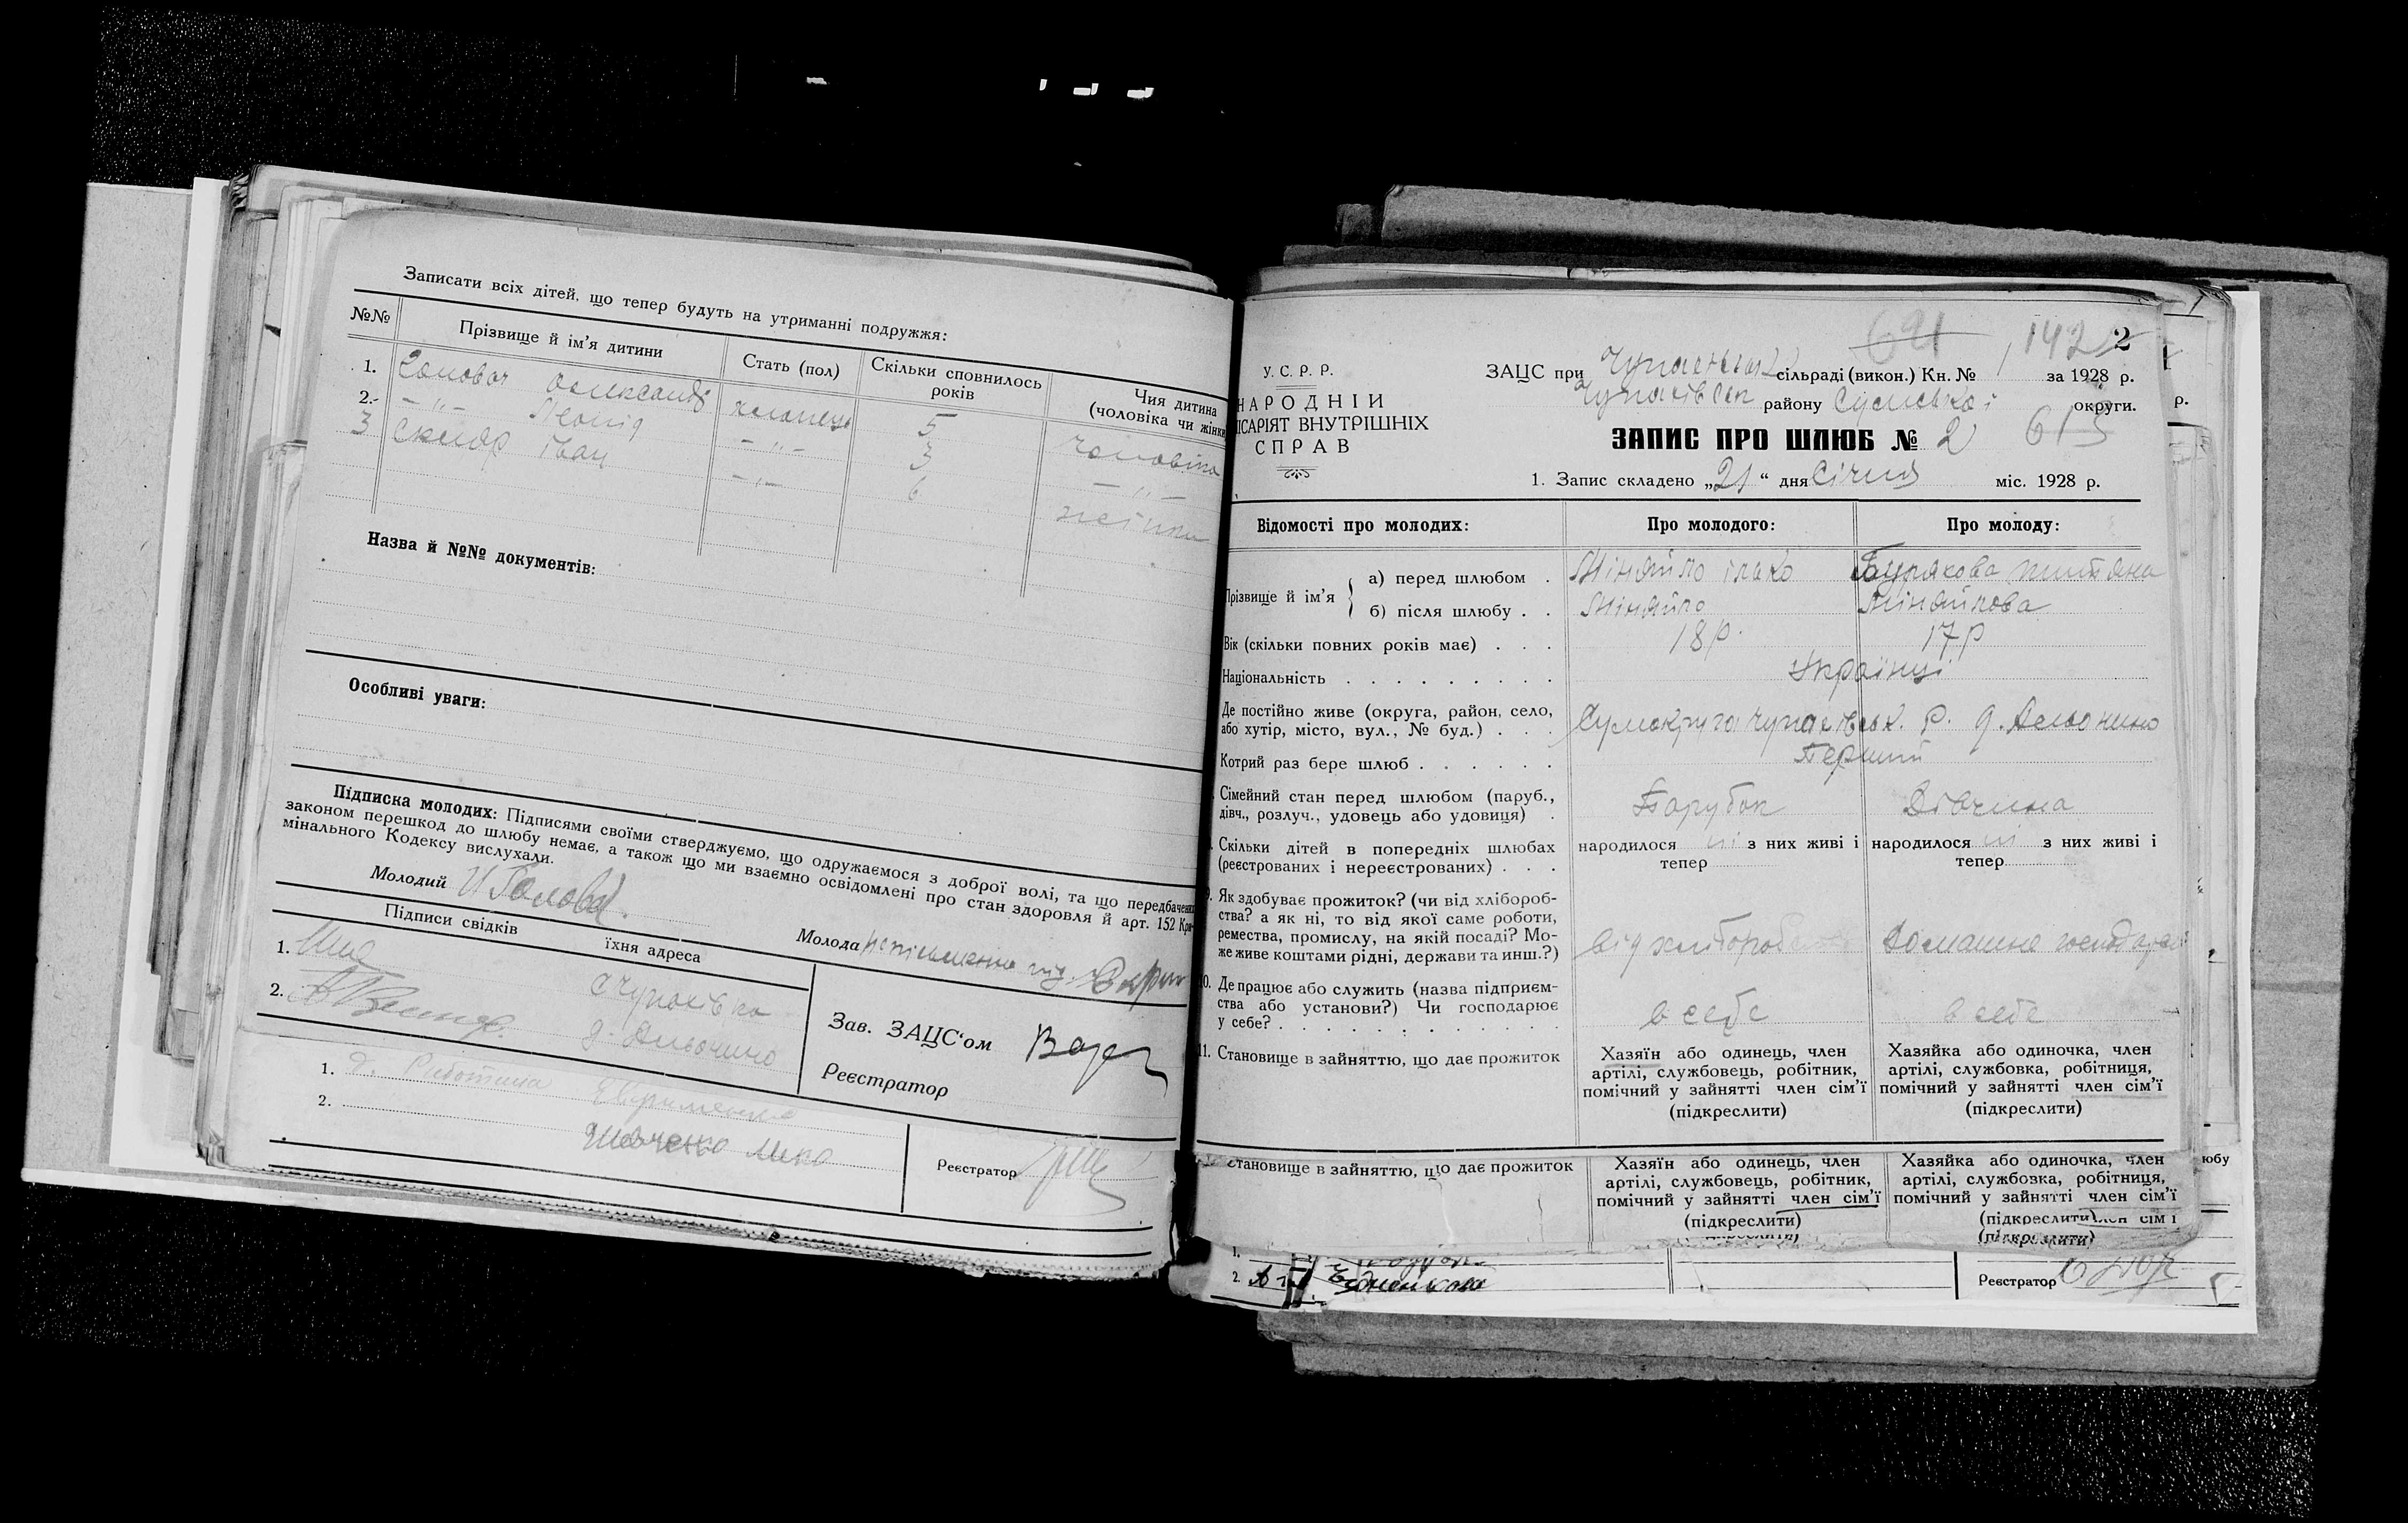 Записати всіх дітей, що тепер будуть на утриманні подружжя:
№№ Прізвище й ім'я дитини Стать (пол) Скільки сповнилось років Чия дитина (чоловіка чи жінки
1. Головач Олександр хлопець 5 чоловіка
2. -"- Леонід -"- 3 -"-
3 Скляр Іван -"- 6 жінки
Назва й №№ документів:
Особливі уваги:
Підписка молодих: Підписями своїми стверджуємо, що одружаємося з доброї волі, та що передбачених
законом перешкод до шлюбу немає, а також що ми взаємно освідомлені про стан здоровля й арт. 152 Кри-
мінального Кодексу вислухали.
Молодий Молода неписьменна
Підписи свідків їхня адреса
1. с Чупахівка
2. д. Альочино
Зав. ЗАЦС'ом
Реєстратор
1.
2. Шевченко
Реєстратор
691 142 2
У. С. Р. Р.
НАРОДНІЙ
ІСАРІЯТ ВНУТРІШНІХ
СПРАВ
ЗАЦС при сільраді (викон.) Кн. № 1 за 1928 р.
Чупахівськ району Сумської округи.
ЗАПИС ПРО ШЛЮБ № 2 613
1. Запис складено „21“ дня Січня міс. 1928 р.
р.
Відомості про молодих: Про молодого: Про молоду:
Прізвище й ім'я
а) перед шлюбом . Міняйло Ілько Бурякова Титяна
б) після шлюбу . . Міняйло Міняйлова
Вік (скільки повних років має) . . . 18 р. 17 р
Національність . . . . . . . . . Українці
Де постійно живе (округа, район, село,
або хутір, місто, вул., № буд.) . . . Сумокруга Чупахівськ. Р. д. Альочино
Котрий раз бере шлюб . . . . . . Перший
Сімейний стан перед шлюбом (паруб.,
дівч., розлуч., удовець або удовиця) . Парубок Дівчина
Скільки дітей в попередніх шлюбах
(реєстрованих і нереєстрованих) . . .
народилося ні з них живі і тепер
народилося ні з них живі і тепер
9. Як здобуває прожиток? (чи від хлібороб-
ства? а як ні, то від якої саме роботи,
ремества, промислу, на якій посаді? Мо-
же живе коштами рідні, держави та инш.?)
від хліборобства
10. Де працює або служить (назва підприєм-
ства або установи?) Чи господарює
у себе? . . . . . . . . . . . . .
в себе в себе
11. Становище в зайняттю, що дає прожиток
Хазяїн або одинець, член
артілі, службовець, робітник,
помічний у зайнятті член сім'ї
(підкреслити)
Хазяйка або одиночка, член
артілі, службовка, робітниця,
помічний у зайнятті член сім'ї
(підкреслити)
становище в зайняттю, що дає прожиток
Хазяїн або одинець, член
артілі, службовець, робітник,
помічний у зайнятті член сім'ї
(підкреслити)
Хазяйка або одиночка, член
артілі, службовка, робітниця,
помічний у зайнятті член сім'ї
(підкреслити)
член сім'ї
(підкреслити)
юбу
1.
2.
Реєстратор